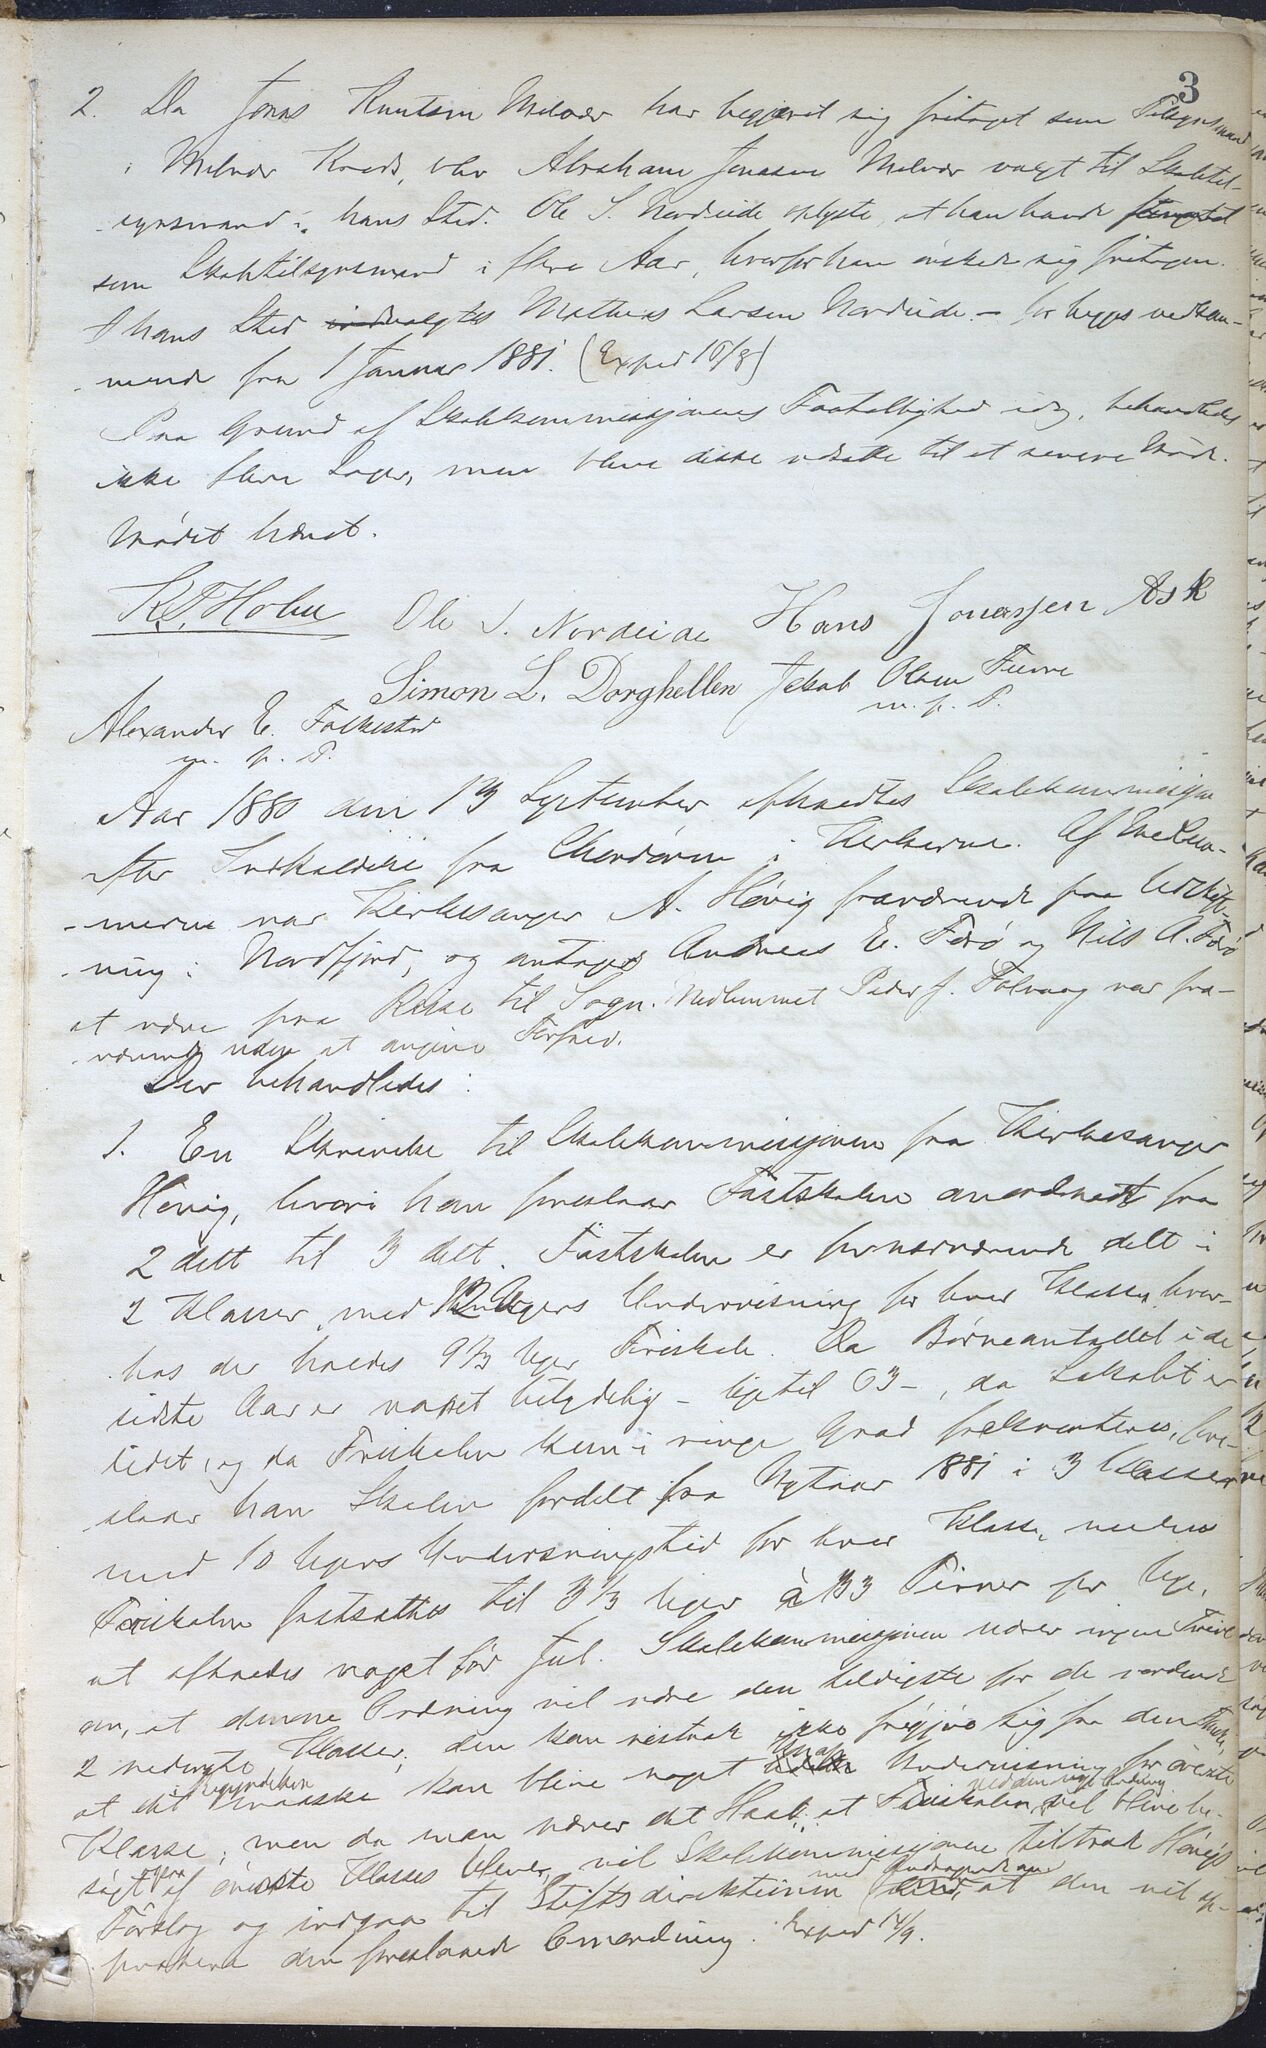 3
2. Da Jonas Knutsen Melvær har begjæret sig fritaget som Tilsynsmand
i Melvær Kreds, blev Abraham Jonasen Melvær valgt til Skoletil-
-synsmand i hans Sted. Ole S. Nordeide oplyste, at han havde fungeret
som Skoletilsynsmand i flere Aar, hvorfor han önskede sig fritagen.
I hans Sted valgtes Mathias Larsen Nordeide - for begges vedkom-
-mende fra 1 Januar 1881. (Exped 10/8)
Paa Grund af Skolekommissjonens Faatallighed idag, behandledes
ikke flere Sager, men bleve disse udsatte til et senere Möde.
Mödet hævet.
K. Holm Ole S. Nordeide Hans Jonassen Ask
Simon L. Dorghellen Jakob Olsen Furre
m. p. P.
Alexander E. Folkestad
m. p. P.
Aar 1880 den 13 September afholdtes Skolekommissjon
efter Indkaldelse fra Ordföreren i Kirkerne. Af Medlem-
-merne var Kirkesanger A. Hövig fraværende paa Udskift-
-ning i Nordfjord, og antages Andreas E. Færö og Nils A. Færö
at være paa Reise til Sogn. Medlemmet Peder J. Folvaag var fra-
-værende uden at angive Forfald.
Der behandledes:
1. En Skrivelse til Skolekommissjonen fra Kirkesanger
Hövig, hvori han foreslaar Fastskolen omordnet fra
2 delt til 3 delt. Fastskolen er fornærværende delt i
2 Klasser, med 12 Ugers Undervisning for hver Klasse, hvor-
hos der holdes 9 1/3 Uger Friskole. Da Börneantallet i de
sidste Aar er voxet betydelig - ligetil 63 -, da Lokalet er
lidet, og da Friskolen kun i ringe Grad frekventeres, fore-
slaar han Skolen fordelt fra Nytaar 1881 i 3 Klasser
med 10 Ugers Undervisningstid for hver Klasse, medens
Friskolen fastsættes til 3 1/3 Uger à 33 Timer pr Uge,
at afholdes noget för Jul. Skolekommissjonen nærer ingen Tvivl
om, at denne Ordning vil være den heldigste for de vordende
2 nederste Klasser; den kan vistnok ikke frigjöre sig fra den Tanke,
at det i Begyndelsen maaske kan blive noget knap Undervisning for överste
Klasse; men da man nærer det Haab, at Friskolen ved den nye Ordning vil blive be-
sögt ogsaa af överste Klasses Elever, vil Skolekommissjonen tiltræde Hövigs
Forslag og indgaa til Stiftsdirektionen med Andragende om, at den vil ap-
probere den foreslaaede Omordning. Exped 14/9.